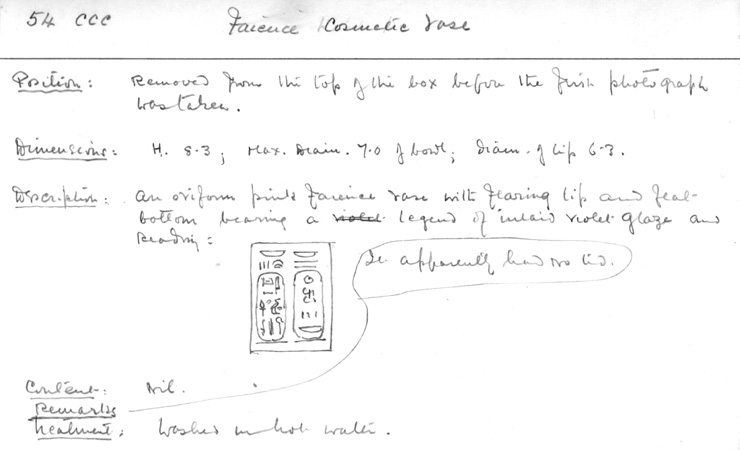 54 ccc Faience Cosmetic vase
Position: Removed from the top of the box before the first photograph
was taken.
Dimensions: H. 8.3; Max. Diam. 7.0 of bowl; Diam. of lip 6.3.
Description: An oviform pink faience vase with flaring lip and flat-
bottom bearing a violet legend of inlaid violet glaze and
Reading:
It apparently had no lid.
Content: Nil.
Remarks
Treatment: Washed in hot water.